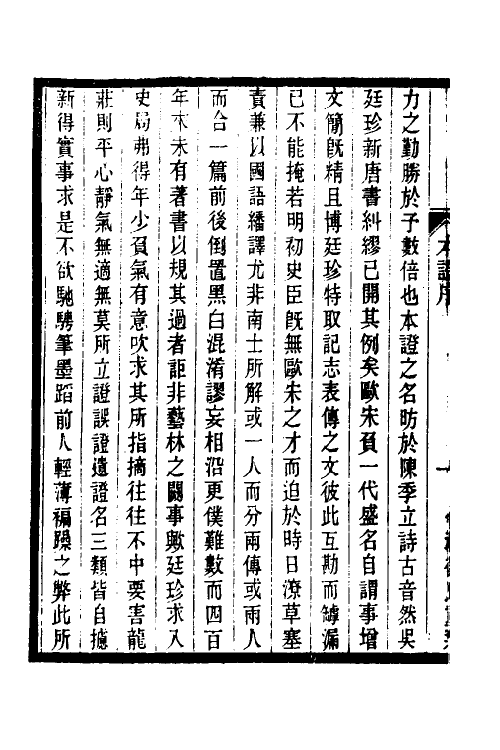 力之勤勝於予數倍也本證之名昉於陳季立詩古音然吳
廷珍新唐書糾繆已開其例矣歐宋負一代盛名自謂事增
文簡旣精且博廷珍特取記志表傳之文彼此互勘而罅漏
已不能掩若明初史臣旣無歐宋之才而迫於時日潦草塞
責兼以國語繙譯尤非南士所解或一人而分兩傳或兩人
而合一篇前後倒置黑白混淆謬妄相沿更僕難數而四百
年來未有著書以規其過者詎非藝林之闕事歟廷珍求入
史局弗得年少負氣有意吹求其所指摘往往不中要害龍
莊則平心靜氣無適無莫所立證誤證遺證名三類皆自攄
新得實事求是不欲馳騁筆墨蹈前人輕薄褊躁之弊此所